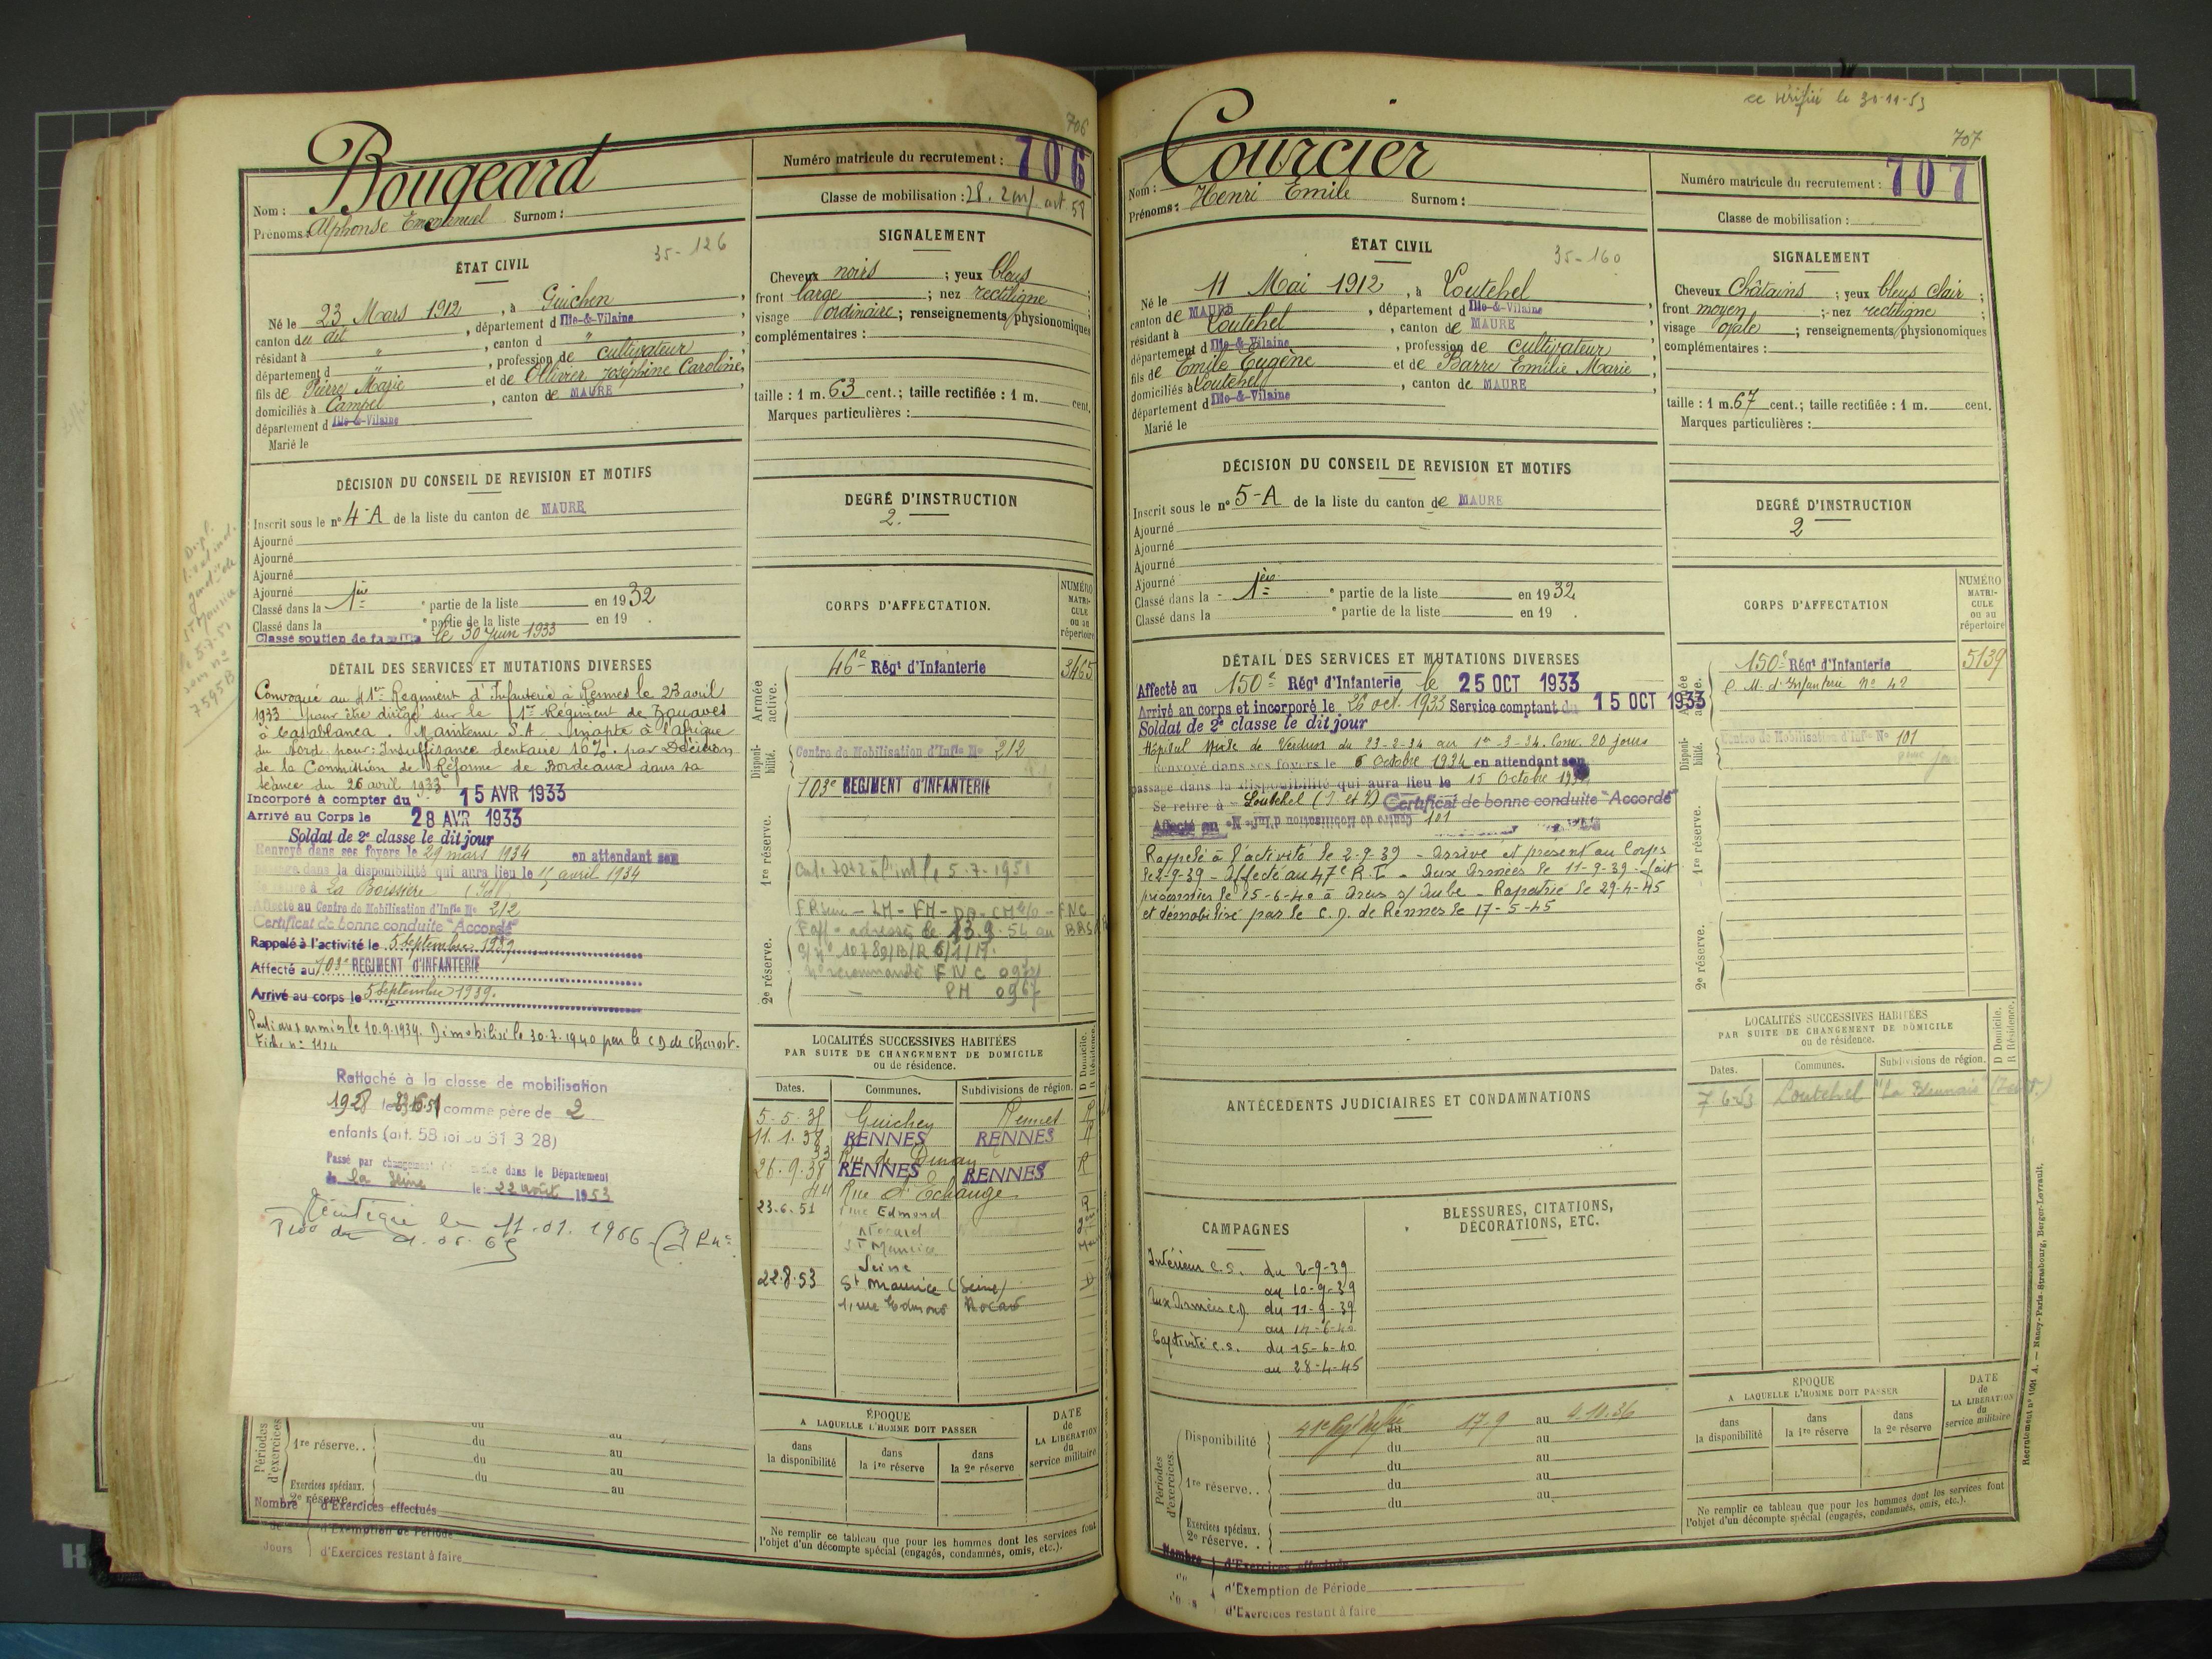 706
Bougeard
Nom :
Prénoms : Alphonse Emmanuel Surnom :
Numéro matricule du recrutement : 706
Classe de mobilisation : 28. 2 enf art 58
35-126
ÉTAT CIVIL
Né le 23 Mars 1912, à Guichen,
canton du dit, département d Ille-&-Vilaine,
résidant à ", canton d "
département d ", profession de cultivateur,
fils de Pierre Marie et de Ollivier Joséphine Caroline,
domiciliés à Campel, canton de MAURE,
département d Ille-&-Vilaine
Marié le
SIGNALEMENT
Cheveux noirs ; yeux bleus ;
front large ; nez rectiligne ;
visage ordinaire ; renseignements physionomiques
complémentaires :
taille : 1 m. 63 cent.; taille rectifiée : 1 m. cent.
Marques particulières :
DÉCISION DU CONSEIL DE REVISION ET MOTIFS
Inscrit sous le nº 4-A de la liste du canton de MAURE
Ajourné
Ajourné
Ajourné
Ajourné
Classé dans la 1ère partie de la liste en 1932
Classé dans la e partie de la liste en 19 .
Classé soutien de famille le 30 Juin 1933
DEGRÉ D'INSTRUCTION
2.
DÉTAIL DES SERVICES ET MUTATIONS DIVERSES
Convoqué au 41e Régiment d'Infanterie à Rennes le 23 avril
1933 pour être dirigé sur le 1er Régiment de Zouaves
à Casablanca. Maintenu S.A. inapte à l'Afrique
du Nord pour : Insuffisance dentaire 10% par Décision
de la Commission de Réforme de Bordeaux dans sa
séance du 26 avril 1933
Incorporé à compter du 15 AVR 1933
Arrivé au Corps le 28 AVR 1933
Soldat de 2e classe le dit jour
Renvoyé dans ses foyers le 29 mars 1934 en attendant son
passage dans la disponibilité qui aura lieu le 15 avril 1934
Se retire à La Boissière
Affecté au Centre de Mobilisation d'Infie No 212
Certificat de bonne conduite "Accordé"
Rappelé à l'activité le 5 Septembre 1939
Affecté au 103e REGIMENT d'INFANTERIE
Arrivé au corps le 5 Septembre 1939.
Parti aux armées le 10.9.1939. Démobilisé le 30.7.1940 par le CD de
Fiche nº 1124
Rattaché à la classe de mobilisation
1928 le comme père de 2
enfants (art. 58 loi du 31 3 28)
Passé par changement dans le Département
de la Seine le 22 août 1953
le 11.01.1966
CORPS D'AFFECTATION.
NUMÉRO MATRICULE ou au répertoire
Armée active.
46e Régt d'Infanterie 3465
Disponibilité.
Centre de Mobilisation d'Infie No 212
103e REGIMENT d'INFANTERIE
1re réserve.
5.7.1951
2e réserve.
LOCALITÉS SUCCESSIVES HABITÉES
PAR SUITE DE CHANGEMENT DE DOMICILE
ou de résidence.
D Domicile. R Résidence.
Dates. Communes. Subdivisions de région.
5-5-35 Guichen Rennes R
11.1.38 RENNES RENNES R
33 Rue de Dinan
26.9.38 RENNES RENNES R
44 Rue d'Echange
23.6.51 1 rue Edmond R
Nocard
St Maurice
Seine
22.8.53 St Maurice (Seine) D
1, rue Edmond Nocard
Périodes d'exercices
1re réserve. . du au
du au
du au
Exercices spéciaux.
2e réserve.
Nombre de Jours
d'Exercices effectués
d'Exemption de Période
d'Exercices restant à faire
ÉPOQUE
A LAQUELLE L'HOMME DOIT PASSER
dans la disponibilité
dans la 1re réserve
dans la 2e réserve
DATE de LA LIBÉRATION du service militaire
Ne remplir ce tableau que pour les hommes dont les services font
l'objet d'un décompte spécial (engagés, condamnés, omis, etc.).
ce vérifié le 30-11-53
707
Courcier
Nom :
Prénoms : Henri Emile Surnom :
Numéro matricule du recrutement : 707
Classe de mobilisation :
35-160
ÉTAT CIVIL
Né le 11 Mai 1912, à Loutehel,
canton de MAURE, département d Ille-&-Vilaine
résidant à Loutehel, canton de MAURE
département d Ille-&-Vilaine, profession de cultivateur,
fils de Emile Eugène et de Barre Emilie Marie,
domiciliés à Loutehel, canton de MAURE,
département d Ille-&-Vilaine
Marié le
SIGNALEMENT
Cheveux Châtains ; yeux bleus clair ;
front moyen ; nez rectiligne ;
visage ovale ; renseignements physionomiques
complémentaires :
taille : 1 m. 67 cent.; taille rectifiée : 1 m. cent.
Marques particulières :
DÉCISION DU CONSEIL DE REVISION ET MOTIFS
Inscrit sous le nº 5-A de la liste du canton de MAURE
Ajourné
Ajourné
Ajourné
Ajourné
Classé dans la 1ère partie de la liste en 1932
Classé dans la e partie de la liste en 19 .
DEGRÉ D'INSTRUCTION
2
DÉTAIL DES SERVICES ET MUTATIONS DIVERSES
Affecté au 150e Régt d'Infanterie le 25 OCT 1933
Arrivé au corps et incorporé le 26 oct. 1933 Service comptant du 15 OCT 1933
Soldat de 2e classe le dit jour
Hôpital Mixte de Verdun du 23-2-34 au 1er-3-34. Conv. 20 jours
Renvoyé dans ses foyers le 6 Octobre 1934 en attendant son
passage dans la disponibilité qui aura lieu le 15 Octobre 1934
Se retire à Loutehel (I et V) Certificat de bonne conduite "Accordé"
Affecté au Centre de Mobilisation d'Infie No 101
Rappelé à l'activité le 2-9-39 - Arrivé et présent au Corps
le 2-9-39 - Affecté au 47e R.I. - Aux Armées le 11-9-39 - fait
prisonnier le 15-6-40 à Arcis s/ Aube - Rapatrié le 29-4-45
et démobilisé par le C.D. de Rennes le 17-5-45
CORPS D'AFFECTATION
NUMÉRO MATRICULE ou au répertoire
Armée active.
150e Régt d'Infanterie 5139
C. M. d'Infanterie Nº 42
Disponibilité.
Centre de Mobilisation d'Infie No 101
1re réserve.
2e réserve.
ANTÉCÉDENTS JUDICIAIRES ET CONDAMNATIONS
CAMPAGNES
Intérieur C.S. du 2-9-39
au 10-9-39
Aux Armées C.D. du 11-9-39
au 14-6-40
Captivité C.S. du 15-6-40
au 28-4-45
BLESSURES, CITATIONS,
DÉCORATIONS, ETC.
LOCALITÉS SUCCESSIVES HABITÉES
PAR SUITE DE CHANGEMENT DE DOMICILE
ou de résidence.
D Domicile. R Résidence.
Dates. Communes. Subdivisions de région.
7-6-53 Loutehel "La
Périodes d'exercices
Disponibilité 41e du 17.9 au 4.10.36
du au
1re réserve. . du au
du au
du au
Exercices spéciaux.
2e réserve. .
Nombre de Jours
d'Exercices effectués
d'Exemption de Période
d'Exercices restant à faire
ÉPOQUE
A LAQUELLE L'HOMME DOIT PASSER
dans la disponibilité
dans la 1re réserve
dans la 2e réserve
DATE de LA LIBÉRATION du service militaire
Ne remplir ce tableau que pour les hommes dont les services font
l'objet d'un décompte spécial (engagés, condamnés, omis, etc.).
Recrutement nº 1091 A. — Nancy-Paris-Strasbourg, Berger-Levrault.